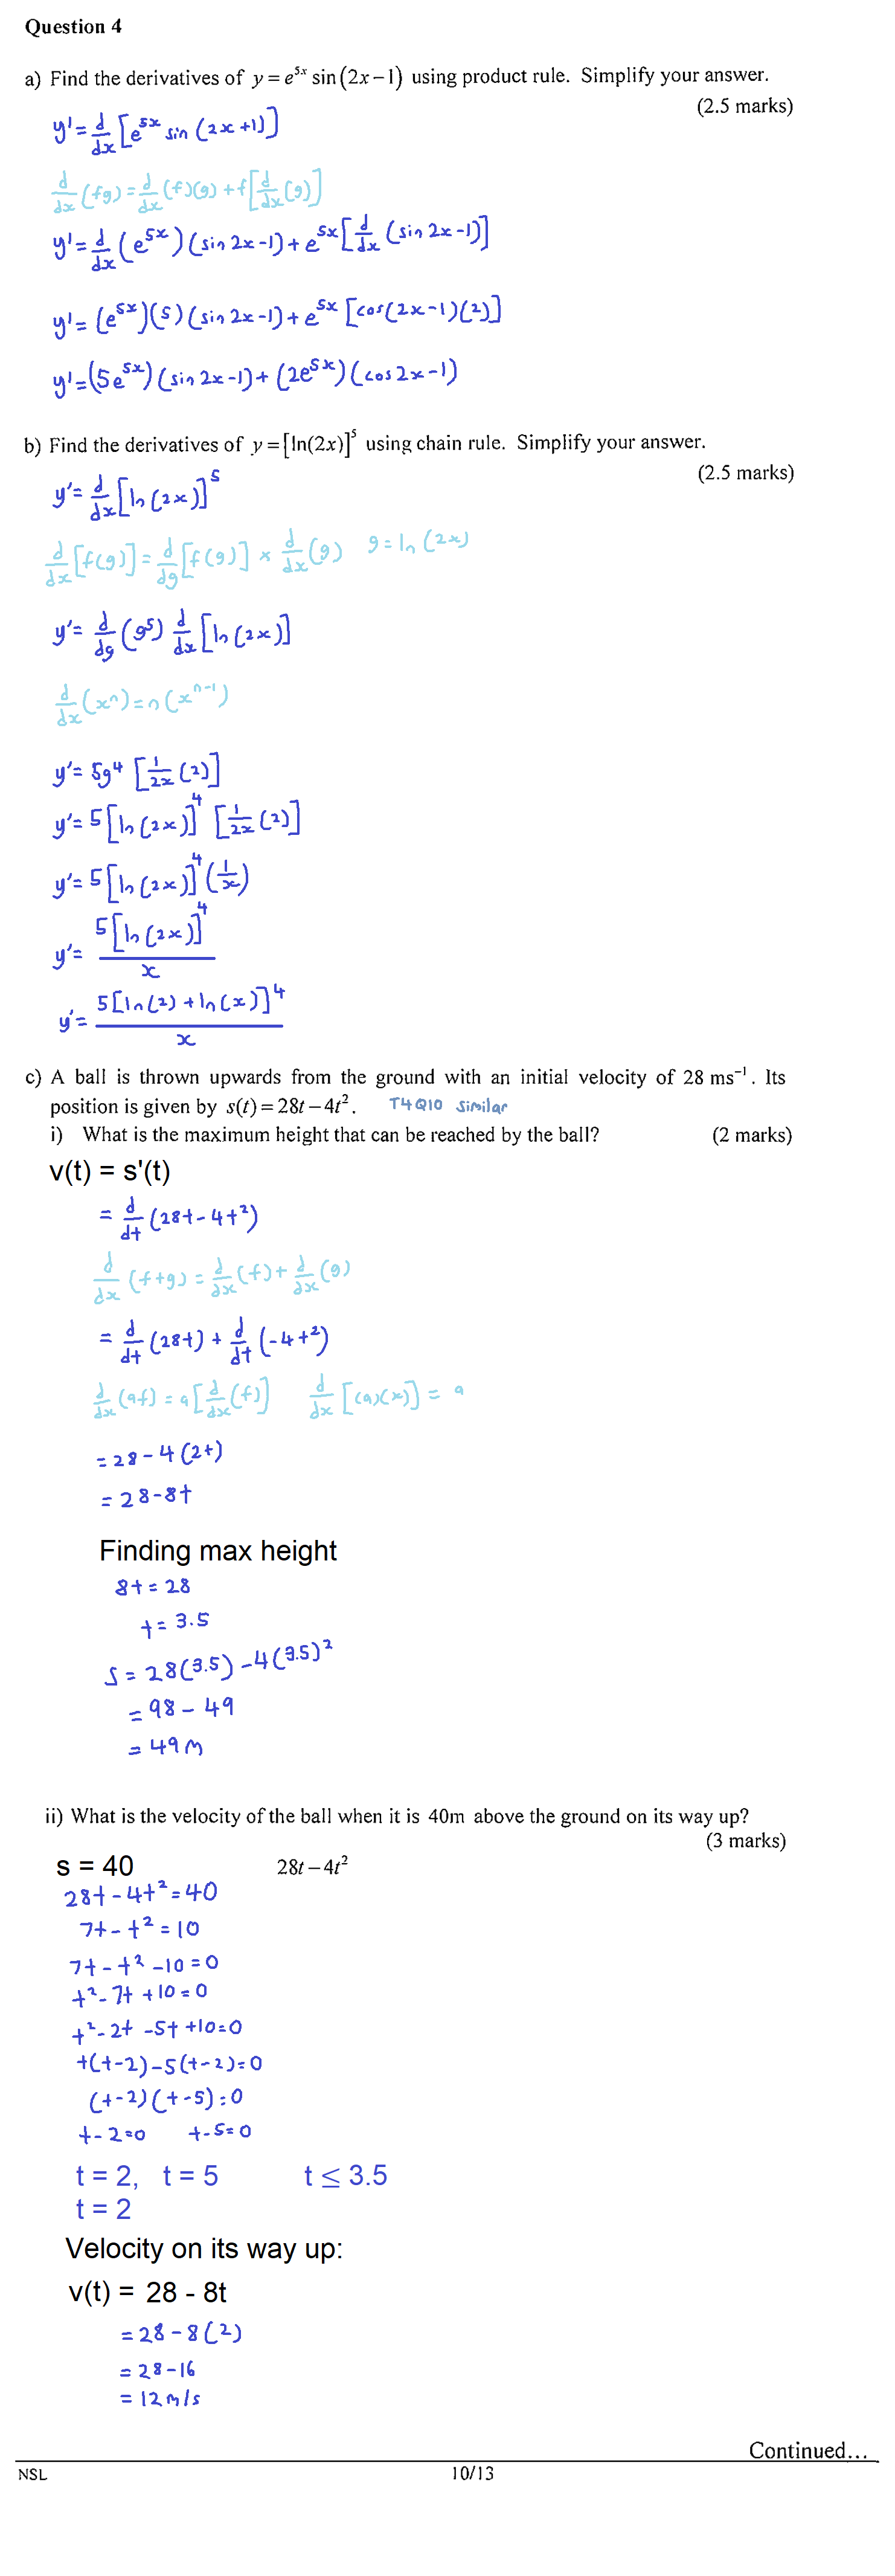 Question 4
a) Find the derivatives of y = e^{5x} sin(2x−1) using product rule. Simplify your answer.
(2.5 marks)
y' = d/dx [e^{5x} sin (2x +1)]
d/dx (fg) = d/dx (f)(g) + f[d/dx (g)]
y' = d/dx (e^{5x})(sin 2x -1) + e^{5x} [d/dx (sin 2x -1)]
y' = (e^{5x})(5)(sin 2x -1) + e^{5x} [cos(2x -1)(2)]
y' = (5e^{5x})(sin 2x -1) + (2e^{5x})(cos 2x -1)
b) Find the derivatives of y = [ln(2x)]^5 using chain rule. Simplify your answer.
(2.5 marks)
y' = d/dx [ln (2x)]^5
d/dx [f(g)] = d/dg [f(g)] × d/dx (g)   g = ln (2x)
y' = d/dg (g^5) d/dx [ln (2x)]
d/dx (x^n) = n(x^{n-1})
y' = 5g^4 [1/2x (2)]
y' = 5[ln (2x)]^4 [1/2x (2)]
y' = 5[ln (2x)]^4 (1/x)
y' = 5[ln (2x)]^4 / x
y' = 5[ln(2) + ln(x)]^4 / x
c) A ball is thrown upwards from the ground with an initial velocity of 28 ms^{−1}. Its
position is given by s(t) = 28t − 4t². T4Q10 similar
i) What is the maximum height that can be reached by the ball? (2 marks)
v(t) = s'(t)
= d/dt (28t - 4t²)
d/dx (f+g) = d/dx (f) + d/dx (g)
= d/dt (28t) + d/dt (-4t²)
d/dx (af) = a[d/dx (f)]   d/dx [(a)(x)] = a
= 28 - 4(2t)
= 28 - 8t
Finding max height
8t = 28
t = 3.5
S = 28(3.5) - 4(3.5)²
= 98 - 49
= 49m
ii) What is the velocity of the ball when it is 40m above the ground on its way up?
(3 marks)
s = 40   28t − 4t²
28t - 4t² = 40
7t - t² = 10
7t - t² - 10 = 0
t² - 7t + 10 = 0
t² - 2t - 5t + 10 = 0
t(t-2) - 5(t-2) = 0
(t-2)(t-5) = 0
t - 2 = 0   t - 5 = 0
t = 2, t = 5   t ≤ 3.5
t = 2
Velocity on its way up:
v(t) = 28 - 8t
= 28 - 8(2)
= 28 - 16
= 12 m/s
Continued...
NSL 10/13